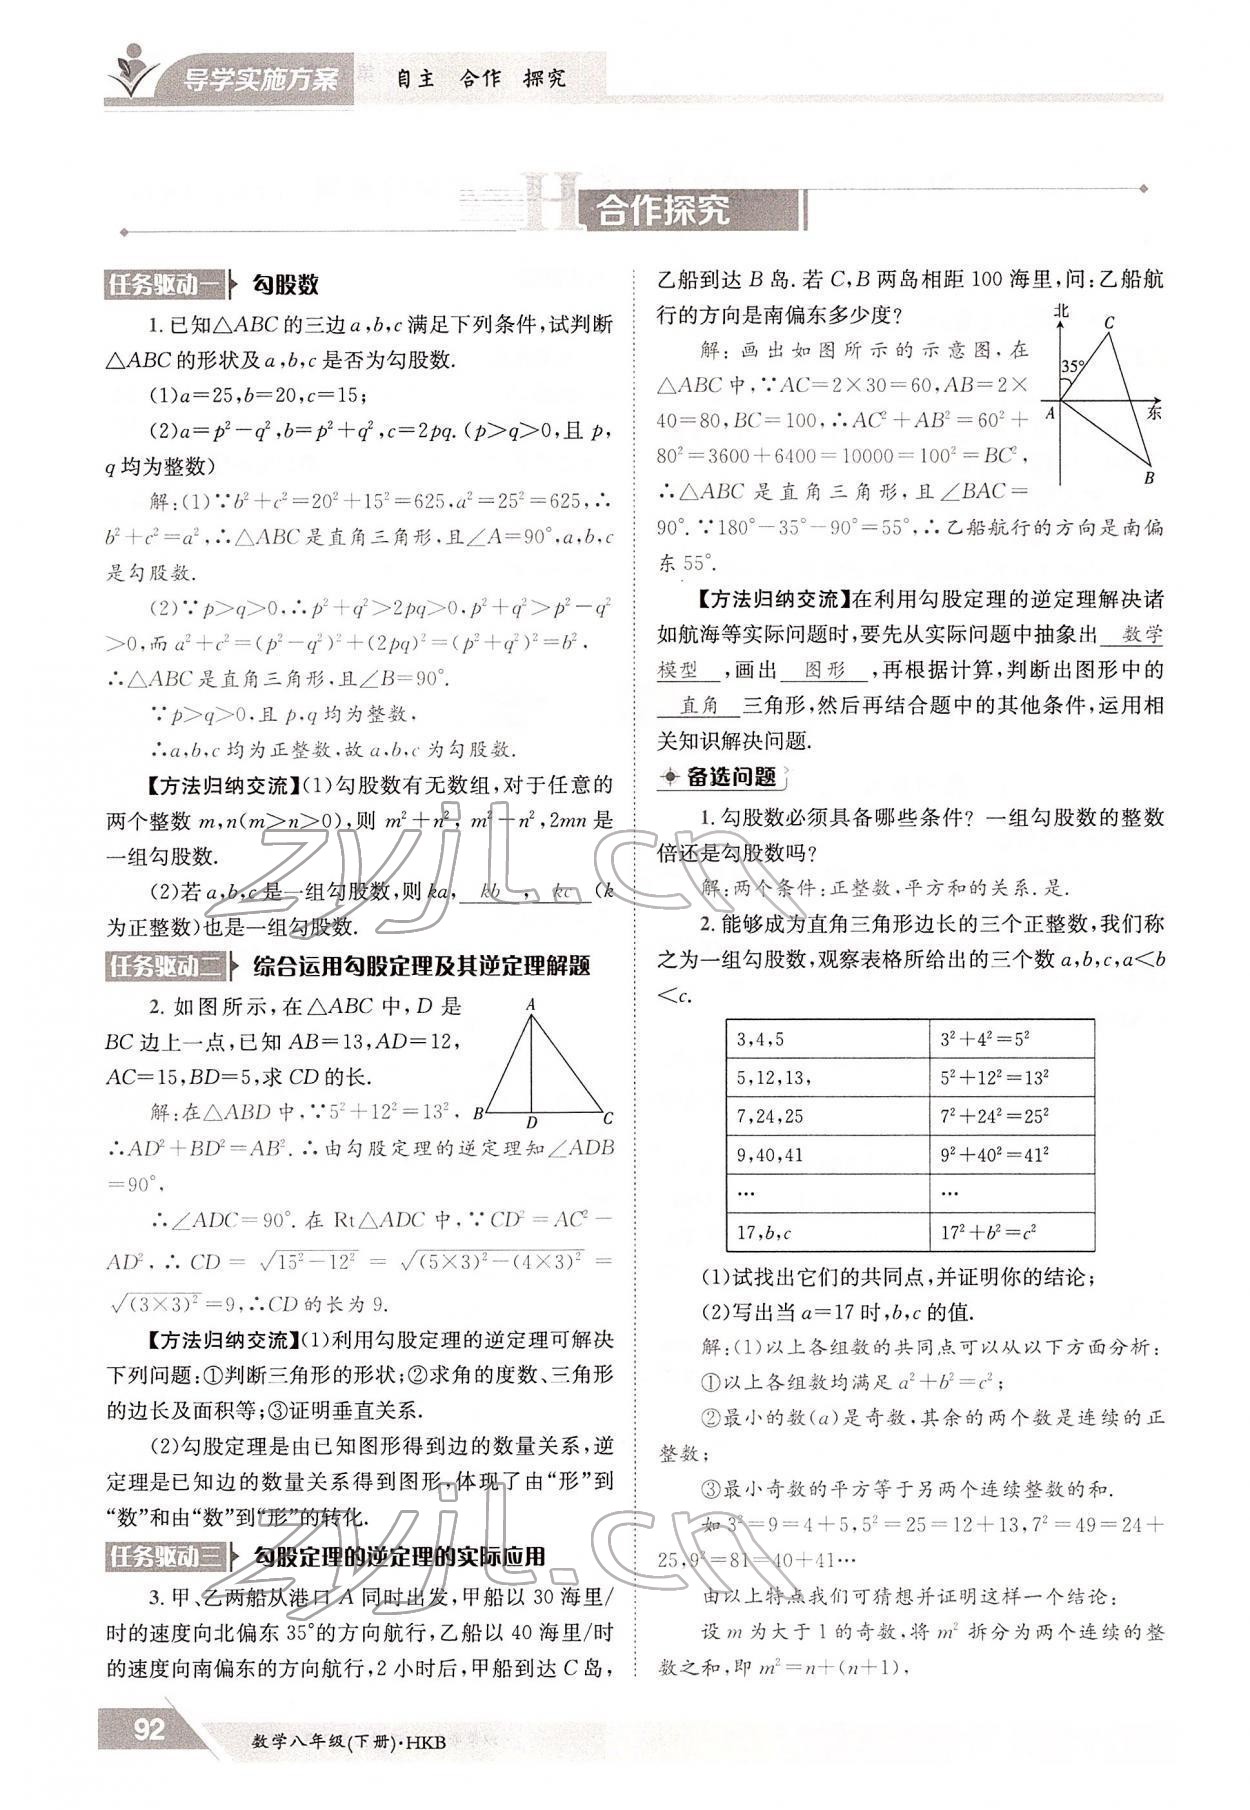 导学实施方案 自主 合作 探究
H 合作探究
任务驱动一 勾股数
1.已知△ABC的三边a,b,c满足下列条件,试判断
△ABC的形状及a,b,c是否为勾股数.
(1)a=25,b=20,c=15;
(2)a=p²-q²,b=p²+q²,c=2pq.(p>q>0,且p,
q均为整数)
解:(1)∵b²+c²=20²+15²=625,a²=25²=625,∴
b²+c²=a²,∴△ABC是直角三角形,且∠A=90°,a,b,c
是勾股数.
(2)∵p>q>0,∴p²+q²>2pq>0,p²+q²>p²-q²
>0,而a²+c²=(p²-q²)²+(2pq)²=(p²+q²)²=b²,
∴△ABC是直角三角形,且∠B=90°.
∵p>q>0,且p,q均为整数,
∴a,b,c均为正整数,故a,b,c为勾股数.
【方法归纳交流】(1)勾股数有无数组,对于任意的
两个整数m,n(m>n>0),则m²+n²,m²-n²,2mn是
一组勾股数.
(2)若a,b,c是一组勾股数,则ka, kb , kc (k
为正整数)也是一组勾股数.
任务驱动二 综合运用勾股定理及其逆定理解题
2.如图所示,在△ABC中,D是
BC边上一点,已知AB=13,AD=12,
AC=15,BD=5,求CD的长.
A
B
D
C
解:在△ABD中,∵5²+12²=13²,
∴AD²+BD²=AB².∴由勾股定理的逆定理知∠ADB
=90°,
∴∠ADC=90°.在Rt△ADC中,∵CD²=AC²-
AD²,∴CD=√(15²-12²)=√((5×3)²-(4×3)²)=
√((3×3)²)=9,∴CD的长为9.
【方法归纳交流】(1)利用勾股定理的逆定理可解决
下列问题:①判断三角形的形状;②求角的度数、三角形
的边长及面积等;③证明垂直关系.
(2)勾股定理是由已知图形得到边的数量关系,逆
定理是已知边的数量关系得到图形,体现了由“形”到
“数”和由“数”到“形”的转化.
任务驱动三 勾股定理的逆定理的实际应用
3.甲、乙两船从港口A同时出发,甲船以30海里/
时的速度向北偏东35°的方向航行,乙船以40海里/时
的速度向南偏东的方向航行,2小时后,甲船到达C岛,
乙船到达B岛.若C,B两岛相距100海里,问:乙船航
行的方向是南偏东多少度?
北
C
35°
A
东
B
解:画出如图所示的示意图,在
△ABC中,∵AC=2×30=60,AB=2×
40=80,BC=100,∴AC²+AB²=60²+
80²=3600+6400=10000=100²=BC²,
∴△ABC是直角三角形,且∠BAC=
90°.∵180°-35°-90°=55°,∴乙船航行的方向是南偏
东55°.
【方法归纳交流】在利用勾股定理的逆定理解决诸
如航海等实际问题时,要先从实际问题中抽象出 数学
模型 ,画出 图形 ,再根据计算,判断出图形中的
直角 三角形,然后再结合题中的其他条件,运用相
关知识解决问题.
备选问题
1.勾股数必须具备哪些条件? 一组勾股数的整数
倍还是勾股数吗?
解:两个条件:正整数,平方和的关系.是.
2.能够成为直角三角形边长的三个正整数,我们称
之为一组勾股数,观察表格所给出的三个数a,b,c,a<b
<c.
3,4,5 3²+4²=5²
5,12,13, 5²+12²=13²
7,24,25 7²+24²=25²
9,40,41 9²+40²=41²
… …
17,b,c 17²+b²=c²
(1)试找出它们的共同点,并证明你的结论;
(2)写出当a=17时,b,c的值.
解:(1)以上各组数的共同点可以从以下方面分析:
①以上各组数均满足a²+b²=c²;
②最小的数(a)是奇数,其余的两个数是连续的正
整数;
③最小奇数的平方等于另两个连续整数的和.
如3²=9=4+5,5²=25=12+13,7²=49=24+
25,9²=81=40+41…
由以上特点我们可猜想并证明这样一个结论:
设m为大于1的奇数,将m²拆分为两个连续的整
数之和,即m²=n+(n+1),
92 数学八年级(下册)·HKB
zyjl.cn
zyjl.cn